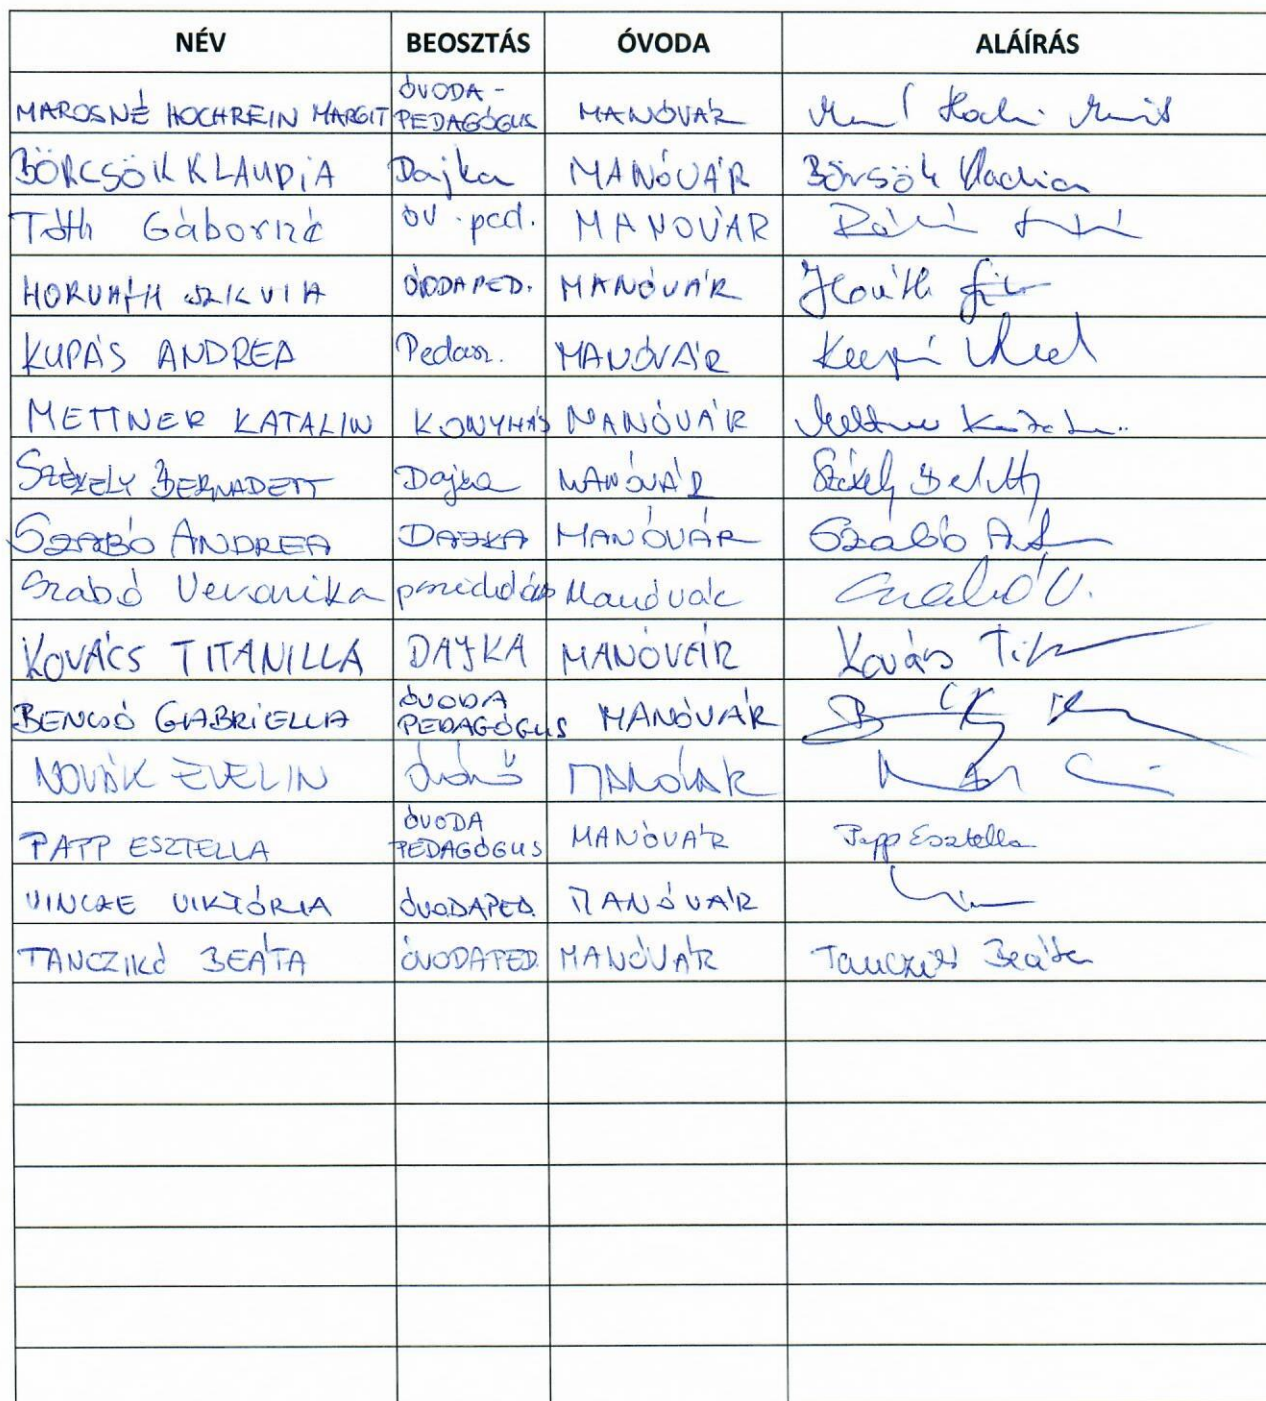 NÉV BEOSZTÁS ÓVODA ALÁÍRÁS
MAROSNÉ HOCHREIN MARGIT ÓVODA-PEDAGÓGUS MANÓVÁR
BÖRCSÖK KLAUDIA Dajka MANÓVÁR Börcsök Klaudia
Tóth Gáborné óv. ped. MANOVÁR
HORVÁTH SZILVIA ÓVODAPED. MANÓVÁR Horváth
KUPÁS ANDREA MANÓVÁR
METTNER KATALIN KONYHÁS MANÓVÁR
SZÉKELY BERNADETT Dajka MANÓVÁR Székely
SZABÓ ANDREA DAJKA MANÓVÁR Szabó
Szabó Veronika Manóvár Szabó V.
KOVÁCS TITANILLA DAJKA MANÓVÁR Kovács
BENCSÓ GABRIELLA ÓVODA PEDAGÓGUS MANÓVÁR
NOVÁK EVELIN MANÓVÁR
PAPP ESZTELLA ÓVODA PEDAGÓGUS MANÓVÁR Papp Esztella
VINCZE VIKTÓRIA ÓVODAPED. MANÓVÁR
TANCZIKÓ BEÁTA ÓVODAPED. MANÓVÁR Tanczikó Beáta